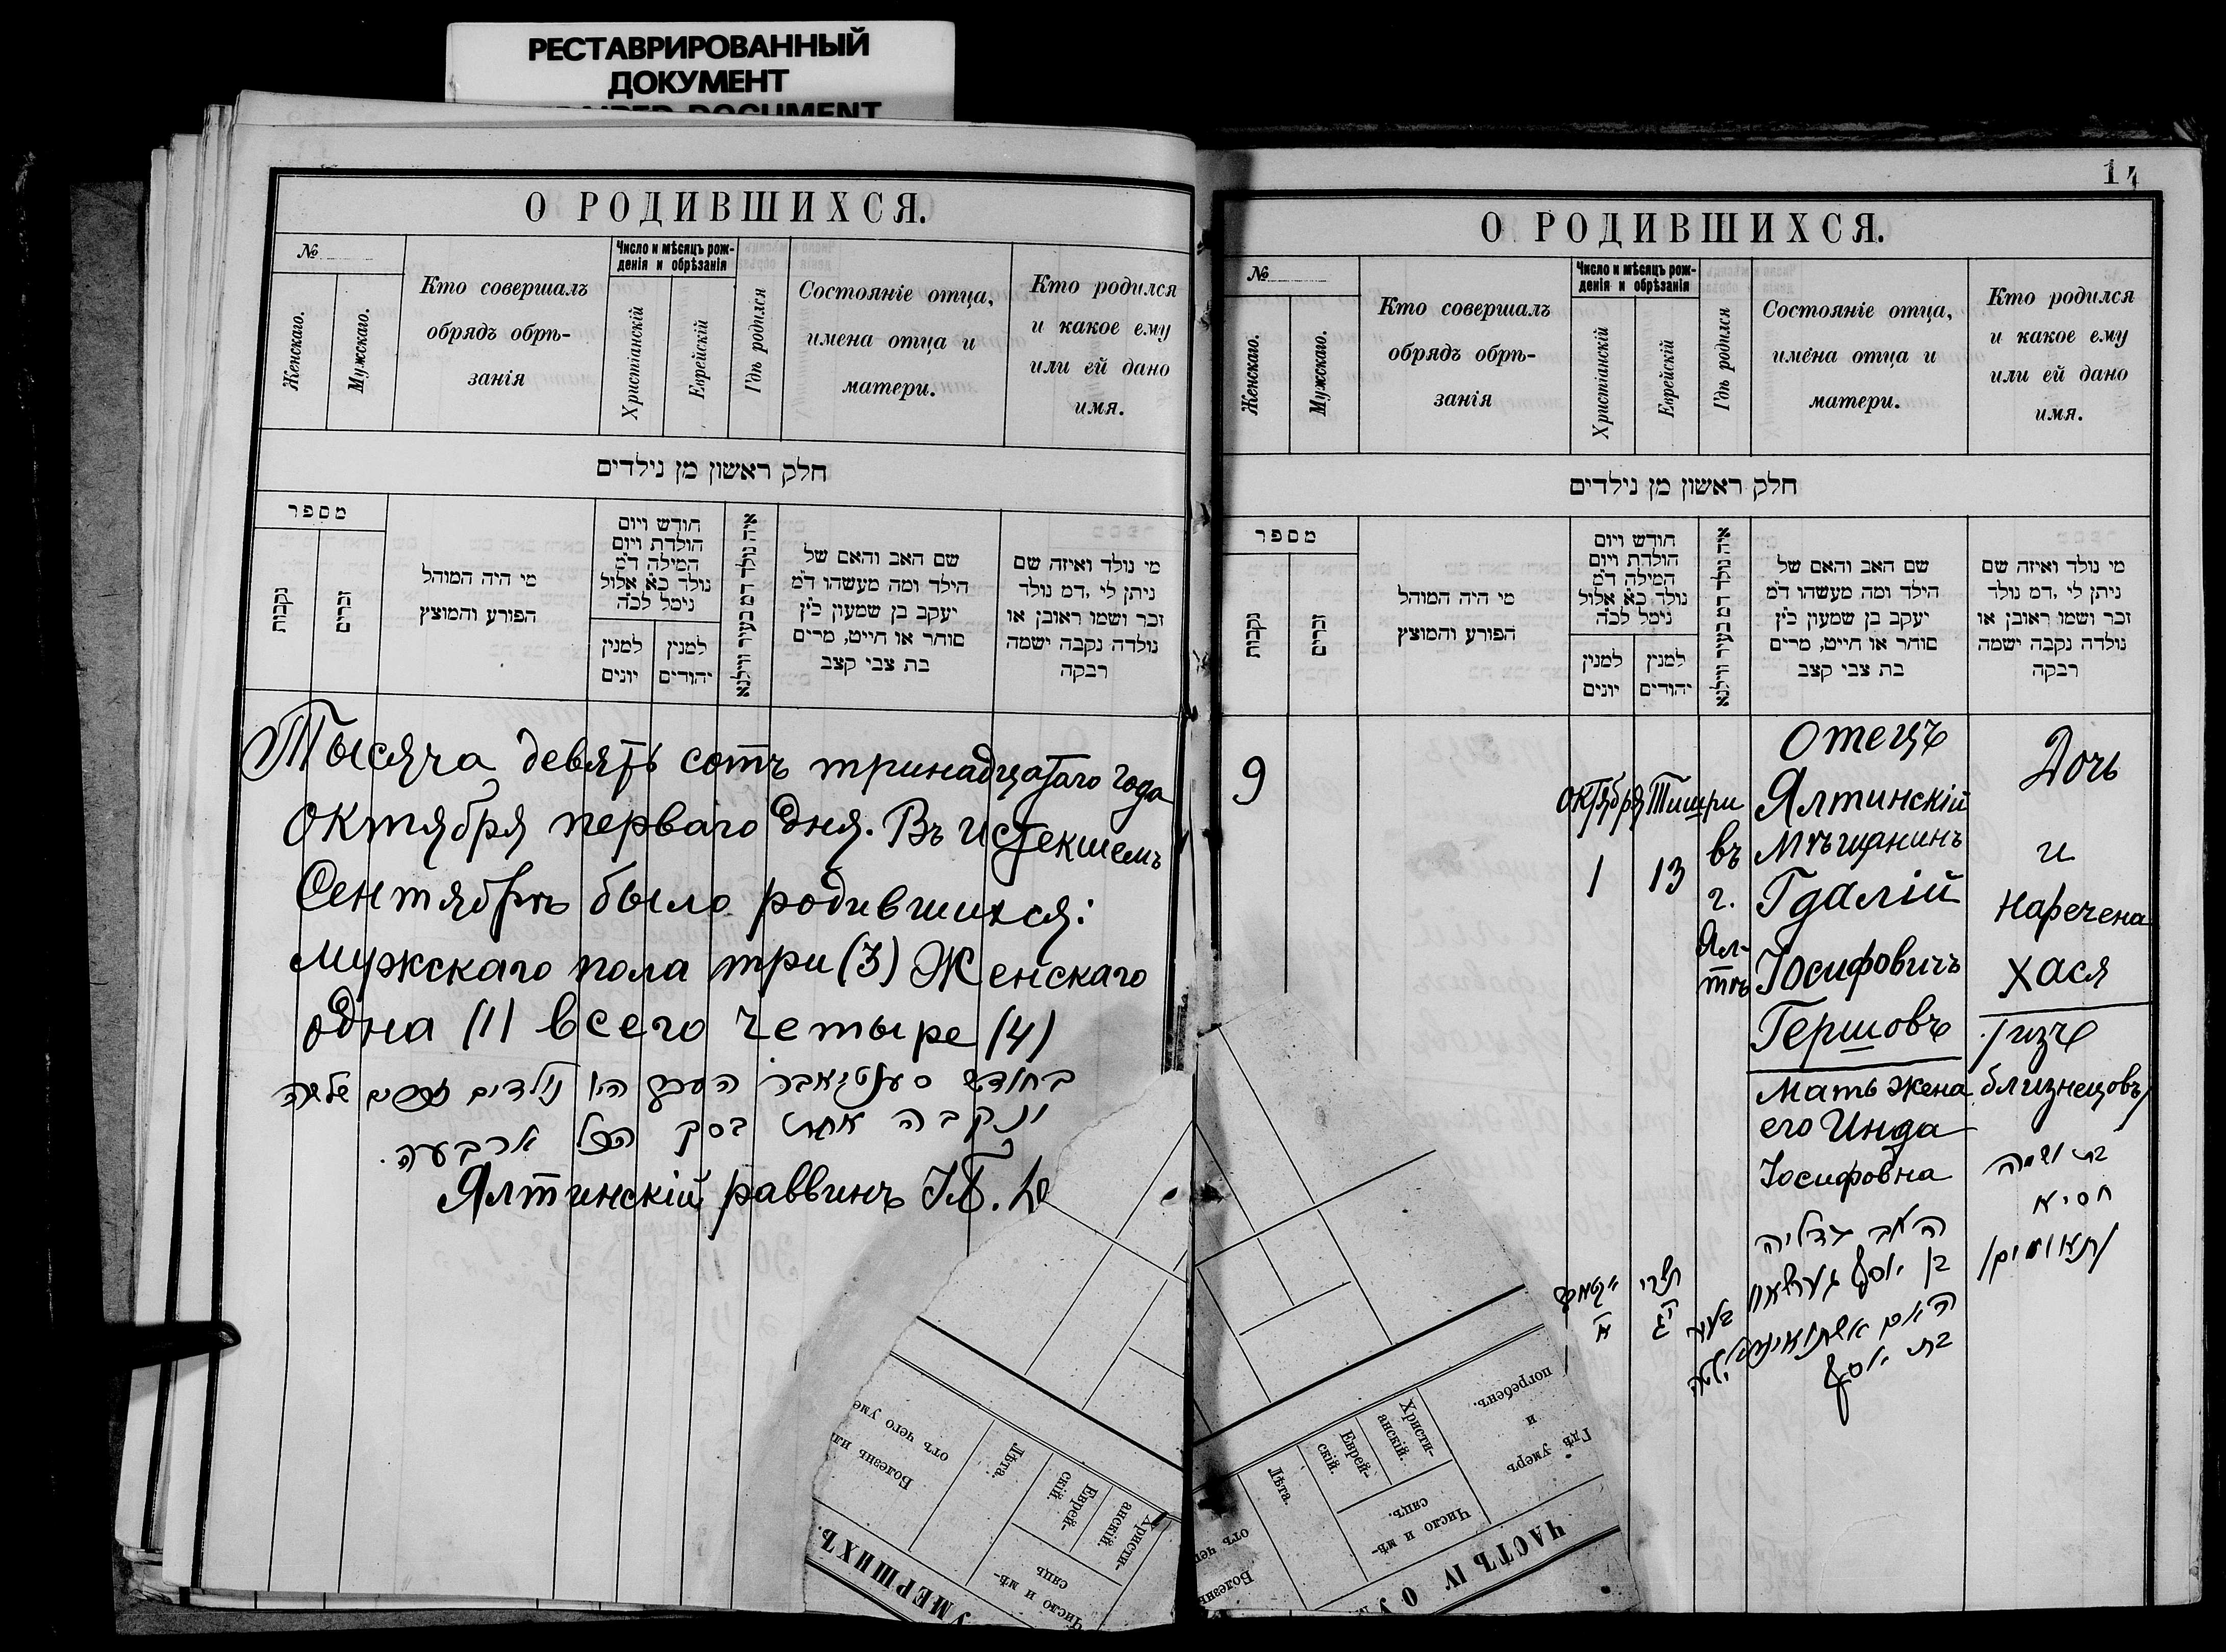 РЕСТАВРИРОВАННЫЙ
ДОКУМЕНТ
DOCUMENT
О РОДИВШИХСЯ.
№
Женскаго.
Мужскаго.
Кто совершалъ
обрядъ обрѣ-
занія
Число и мѣсяцъ рож-
денія и обрѣзанія
Христіанскій
Еврейскій
Гдѣ родился
Состояніе отца,
имена отца и
матери.
Кто родился
и какое ему
или ей дано
имя.
חלק ראשון מן נילדים
מספר
נקבות
זכרים
מי היה המוהל
הפורע והמוצץ
חודש ויום
הולדת ויום
המילה ד״מ
נולד כ״א אלול
נימל לכ״ה
למנין
יונים
למנין
יהודים
איה נולד דמ בעיר ווילנא
שם האב והאם של
הילד ומה מעשהו ד״מ
יעקב בן שמעון כ״ץ
סוחר או חייט, מרים
בת צבי קצב
מי נולד ואיזה שם
ניתן לי ,דמ נולד
זכר ושמו ראובן או
נולדה נקבה ישמה
רבקה
Тысяча девять сотъ тринадцатаго года
Октября перваго дня. Въ истекшемъ
Сентябрѣ было родившихся:
мужскаго пола три (3) Женскаго
одна (1) всего четыре (4)
בחודש סענטיאבר העבר היו נולדים זכרים שלשה
ונקבה אחת בסך הכל ארבעה.
Ялтинскій раввинъ
УМЕРШИХЪ.
Число и мѣ-
сяцъ
Христі-
анскій.
Еврей-
скій.
Лѣта.
Болезнь или
отъ чего уме
14
О РОДИВШИХСЯ.
№
Женскаго.
Мужскаго.
Кто совершалъ
обрядъ обрѣ-
занія
Число и мѣсяцъ рож-
денія и обрѣзанія
Христіанскій
Еврейскій
Гдѣ родился
Состояніе отца,
имена отца и
матери.
Кто родился
и какое ему
или ей дано
имя.
חלק ראשון מן נילדים
מספר
נקבות
זכרים
מי היה המוהל
הפורע והמוצץ
חודש ויום
הולדת ויום
המילה ד״מ
נולד כ״א אלול
נימל לכ״ה
למנין
יונים
למנין
יהודים
איה נולד דמ בעיר ווילנא
שם האב והאם של
הילד ומה מעשהו ד״מ
יעקב בן שמעון כ״ץ
סוחר או חייט, מרים
בת צבי קצב
מי נולד ואיזה שם
ניתן לי ,דמ נולד
זכר ושמו ראובן או
נולדה נקבה ישמה
רבקה
9
Октября
1
Тишри
13
въ
г.
Ял-
тѣ
Отецъ
Ялтинскій
Мѣщанинъ
Гдалій
Іосифовичъ
Гершовъ
Мать жена
его Инда
Іосифовна
Дочь
и
наречена
Хася
/изъ
близнецовъ/
א
תשרי
יג
האב גדליה
בן יוסף גערשאוו
האם אשתו אינדא
בת יוסף
בת ושמה
חסיא
/תאומים/
ЧАСТЬ IV О У
Число и мѣ-
сяцъ.
Христі-
анскій.
Еврей-
скій.
Лѣта.
Гдѣ умеръ
и
погребенъ.
Болезнь
отъ чег